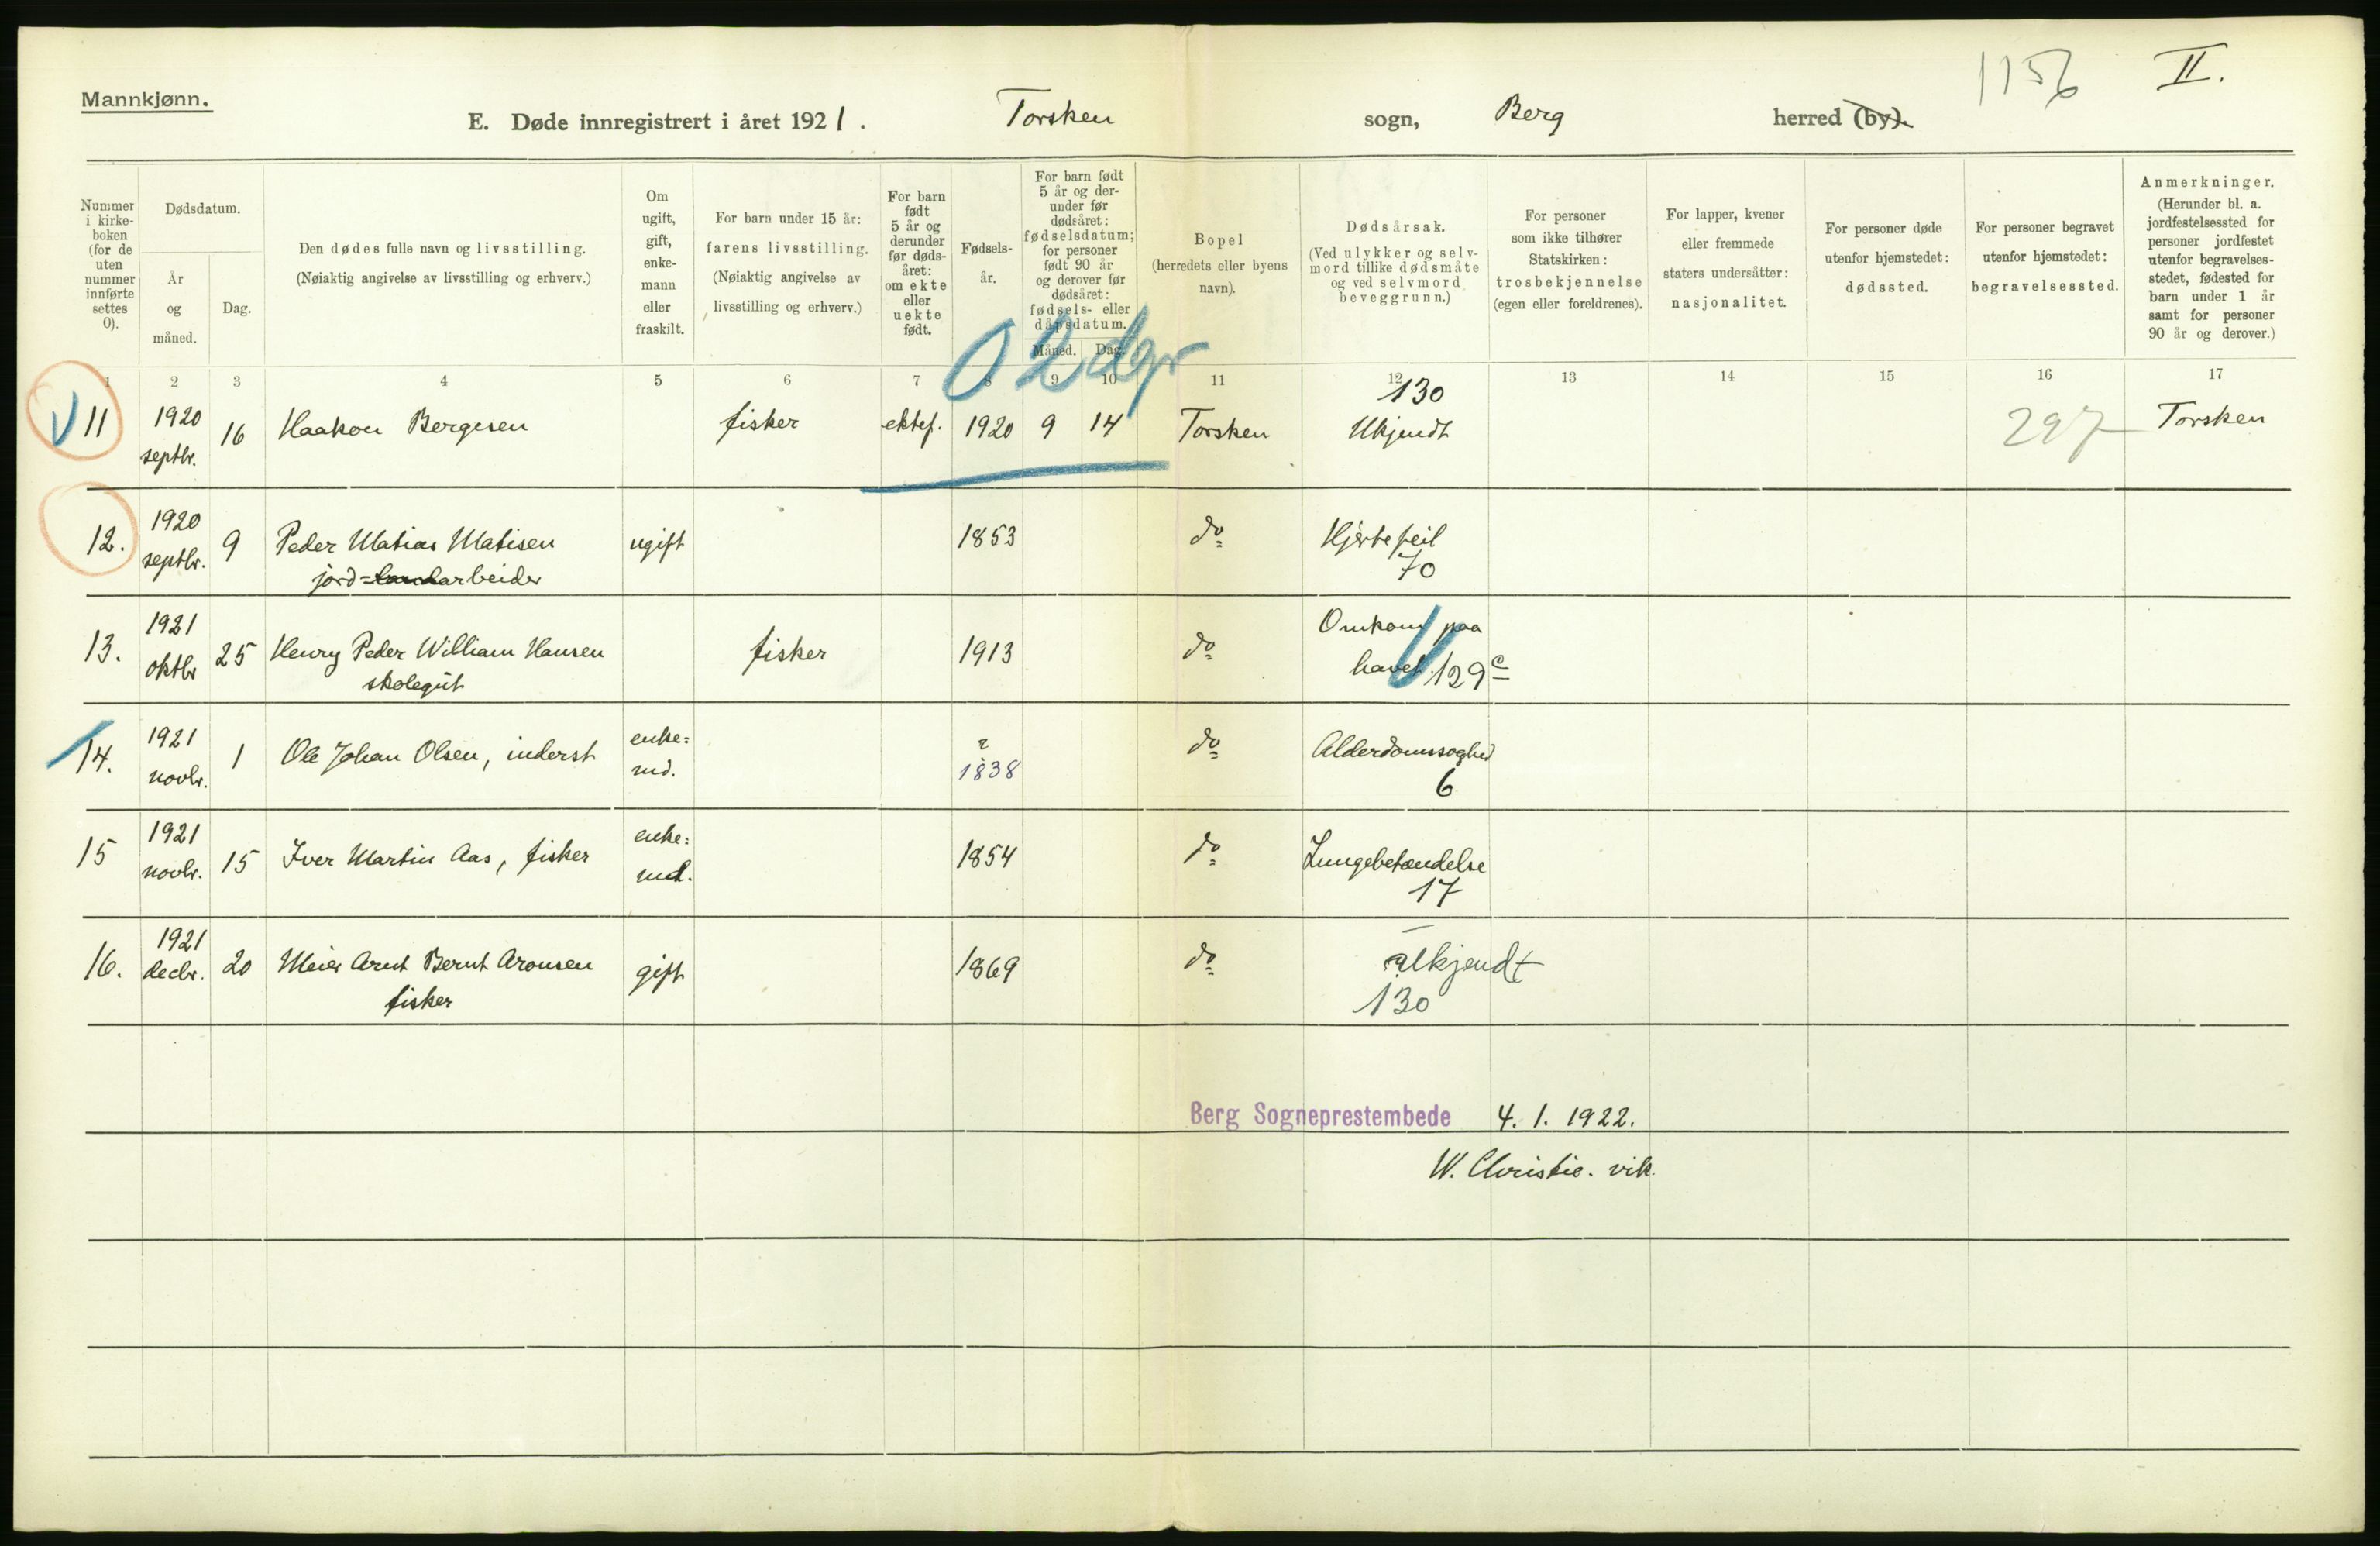 1156 II.
Mannkjønn.
E. Døde innregistrert i året 1921. Torsken sogn, Berg herred (by).
Nummer
i kirke-
boken
(for de
uten
nummer
innførte
settes
0).
Dødsdatum.
År
og
måned.
Dag.
Den dødes fulle navn og livsstilling.
(Nøiaktig angivelse av livsstilling og erhverv.)
Om
ugift,
gift,
enke-
mann
eller
fraskilt.
For barn under 15 år:
farens livsstilling.
(Nøiaktig angivelse av
livsstilling og erhverv.)
For barn
født
5 år og
derunder
før døds-
året:
om ekte
eller
uekte
født.
Fødsels-
år.
For barn født
5 år og der-
under før
dødsåret:
fødselsdatum;
for personer
født 90 år
og derover før
dødsåret:
fødsels- eller
dåpsdatum.
Måned. Dag.
Bopel
(herredets eller byens
navn).
Dødsårsak.
(Ved ulykker og selv-
mord tillike dødsmåte
og ved selvmord
beveggrunn.)
For personer
som ikke tilhører
Statskirken:
trosbekjennelse
(egen eller foreldrenes).
For lapper, kvener
eller fremmede
staters undersåtter:
nasjonalitet.
For personer døde
utenfor hjemstedet:
dødssted.
For personer begravet
utenfor hjemstedet:
begravelsessted.
Anmerkninger.
(Herunder bl. a.
jordfestelsessted for
personer jordfestet
utenfor begravelses-
stedet, fødested for
barn under 1 år
samt for personer
90 år og derover.)
1 2 3 4 5 6 7 8 9 10 11 12 13 14 15 16 17
0 2 dgr
130
11 1920 septbr. 16 Haakon Bergesen fisker ektef. 1920 9 14 Torsken Ukjendt 297 Torsken
12. 1920 septbr. 9 Peder Matias Matisen ugift 1853 do Hjertefeil
jord- arbeider 70
13. 1921 oktbr 25 Henry Peder William Hansen fisker 1913 do Omkom paa
skolegut havet. 129 c
14. 1921 novbr. 1 Ole Johan Olsen, inderst enke=
md. 1838 do Alderdomssvaghed
6
15 1921 novbr. 15 Iver Martin Aas, fisker enke=
md. 1854 do Lungebetændelse
17
16. 1921 decbr. 20 Meier Arnt Bernt Aronsen gift 1869 do Ukjendt
fisker 130
Berg Sogneprestembede 4. 1. 1922.
W. Christie. vik.